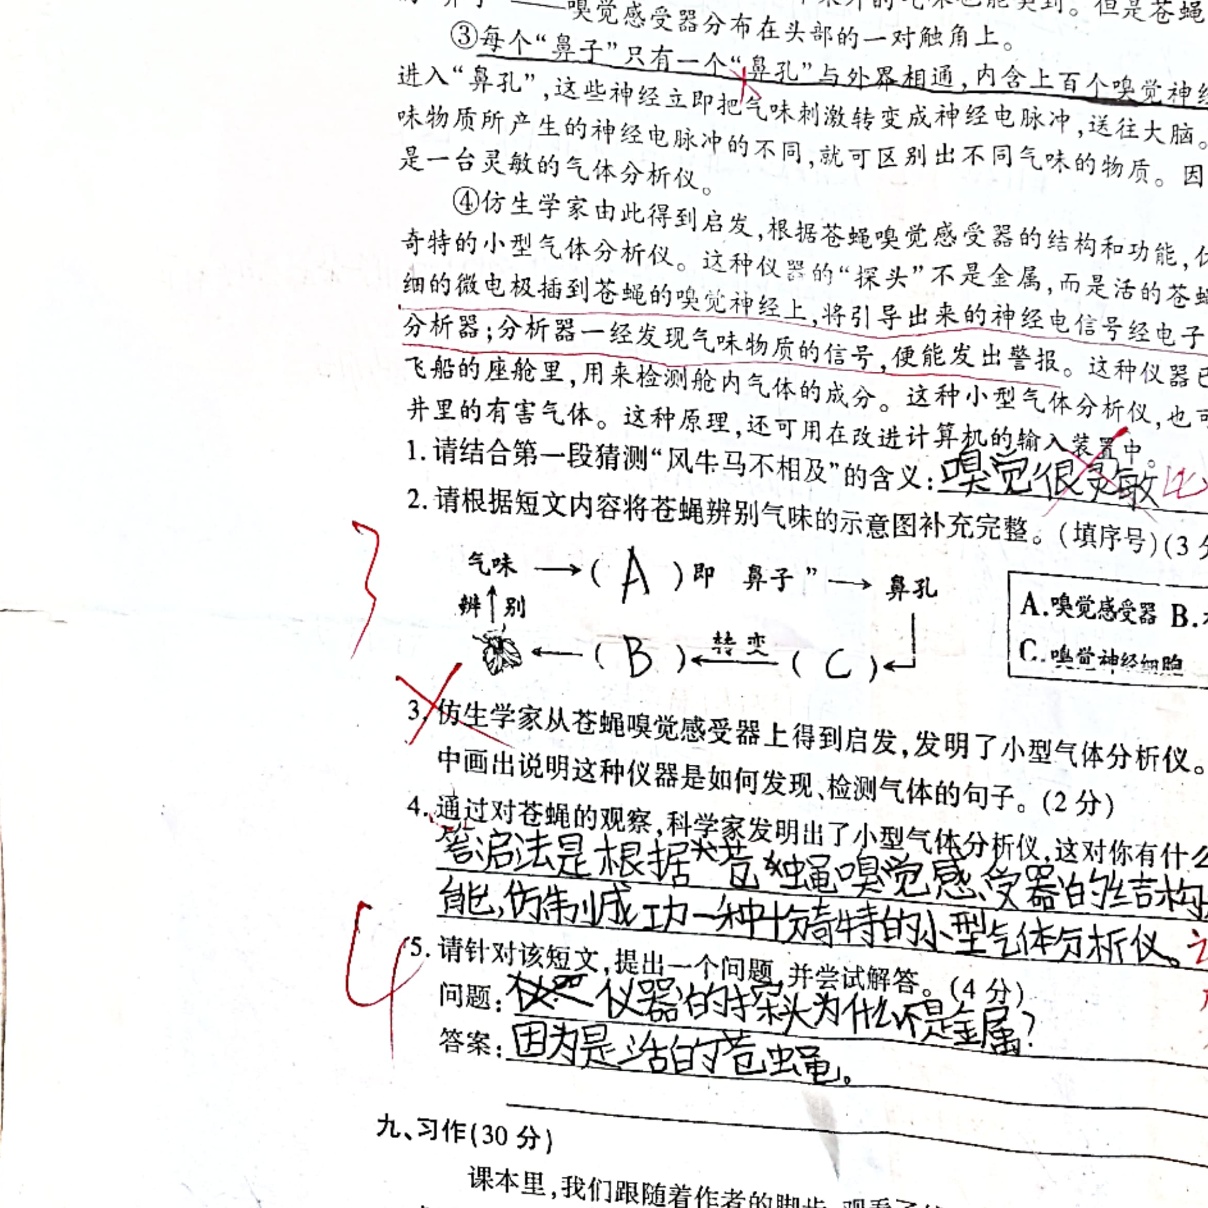 嗅觉感受器分布在头部的一对触角上。
③每个“鼻子”只有一个“鼻孔”与外界相通,内含上百个嗅觉神经
进入“鼻孔”,这些神经立即把气味刺激转变成神经电脉冲,送往大脑。
味物质所产生的神经电脉冲的不同,就可区别出不同气味的物质。因
是一台灵敏的气体分析仪。
④仿生学家由此得到启发,根据苍蝇嗅觉感受器的结构和功能,仿
奇特的小型气体分析仪。这种仪器的“探头”不是金属,而是活的苍蝇
细的微电极插到苍蝇的嗅觉神经上,将引导出来的神经电信号经电子
分析器;分析器一经发现气味物质的信号,便能发出警报。这种仪器已
飞船的座舱里,用来检测舱内气体的成分。这种小型气体分析仪,也可
井里的有害气体。这种原理,还可用在改进计算机的输入装置中。
1.请结合第一段猜测“风牛马不相及”的含义:嗅觉很灵敏
2.请根据短文内容将苍蝇辨别气味的示意图补充完整。(填序号)(3分
气味→(A)即 鼻子”→鼻孔
辨别
A.嗅觉感受器 B.
←(B)←转变(C)
C.嗅觉神经细胞
3
3.仿生学家从苍蝇嗅觉感受器上得到启发,发明了小型气体分析仪。
中画出说明这种仪器是如何发现、检测气体的句子。(2分)
4.通过对苍蝇的观察,科学家发明出了小型气体分析仪,这对你有什么
答:启法是根据苍蝇嗅觉感受器的结构
能,仿制成功一种十分奇特的小型气体分析仪。
4
5.请针对该短文,提出一个问题,并尝试解答。(4分)
问题:仪器的探头为什么不是金属?
答案:因为是活的苍蝇。
九、习作(30分)
课本里,我们跟随着作者的脚步